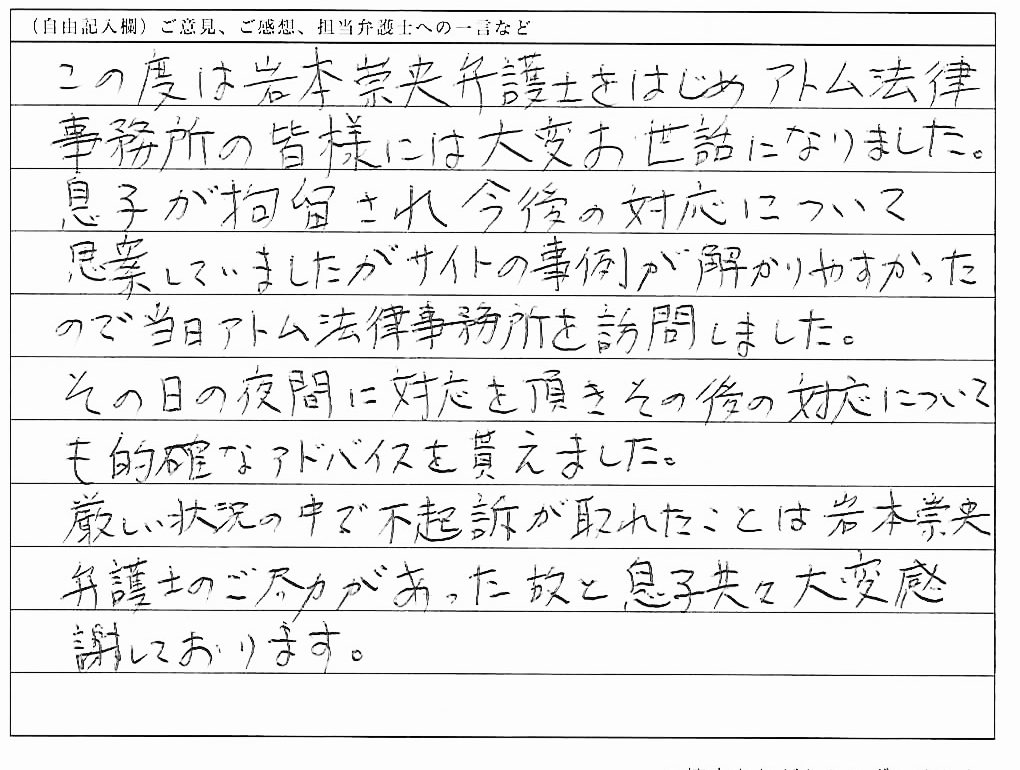 （自由記入欄）ご意見、ご感想、担当弁護士への一言など
この度は岩本崇央弁護士をはじめアトム法律
事務所の皆様には大変お世話になりました。
息子が拘留され今後の対応について
思案していましたがサイトの事例が解かりやすかった
ので当日アトム法律事務所を訪問しました。
その日の夜間に対応を頂きその後の対応について
も的確なアドバイスを貰えました。
厳しい状況の中で不起訴が取れたことは岩本崇央
弁護士のご尽力があった故と息子共々大変感
謝しております。